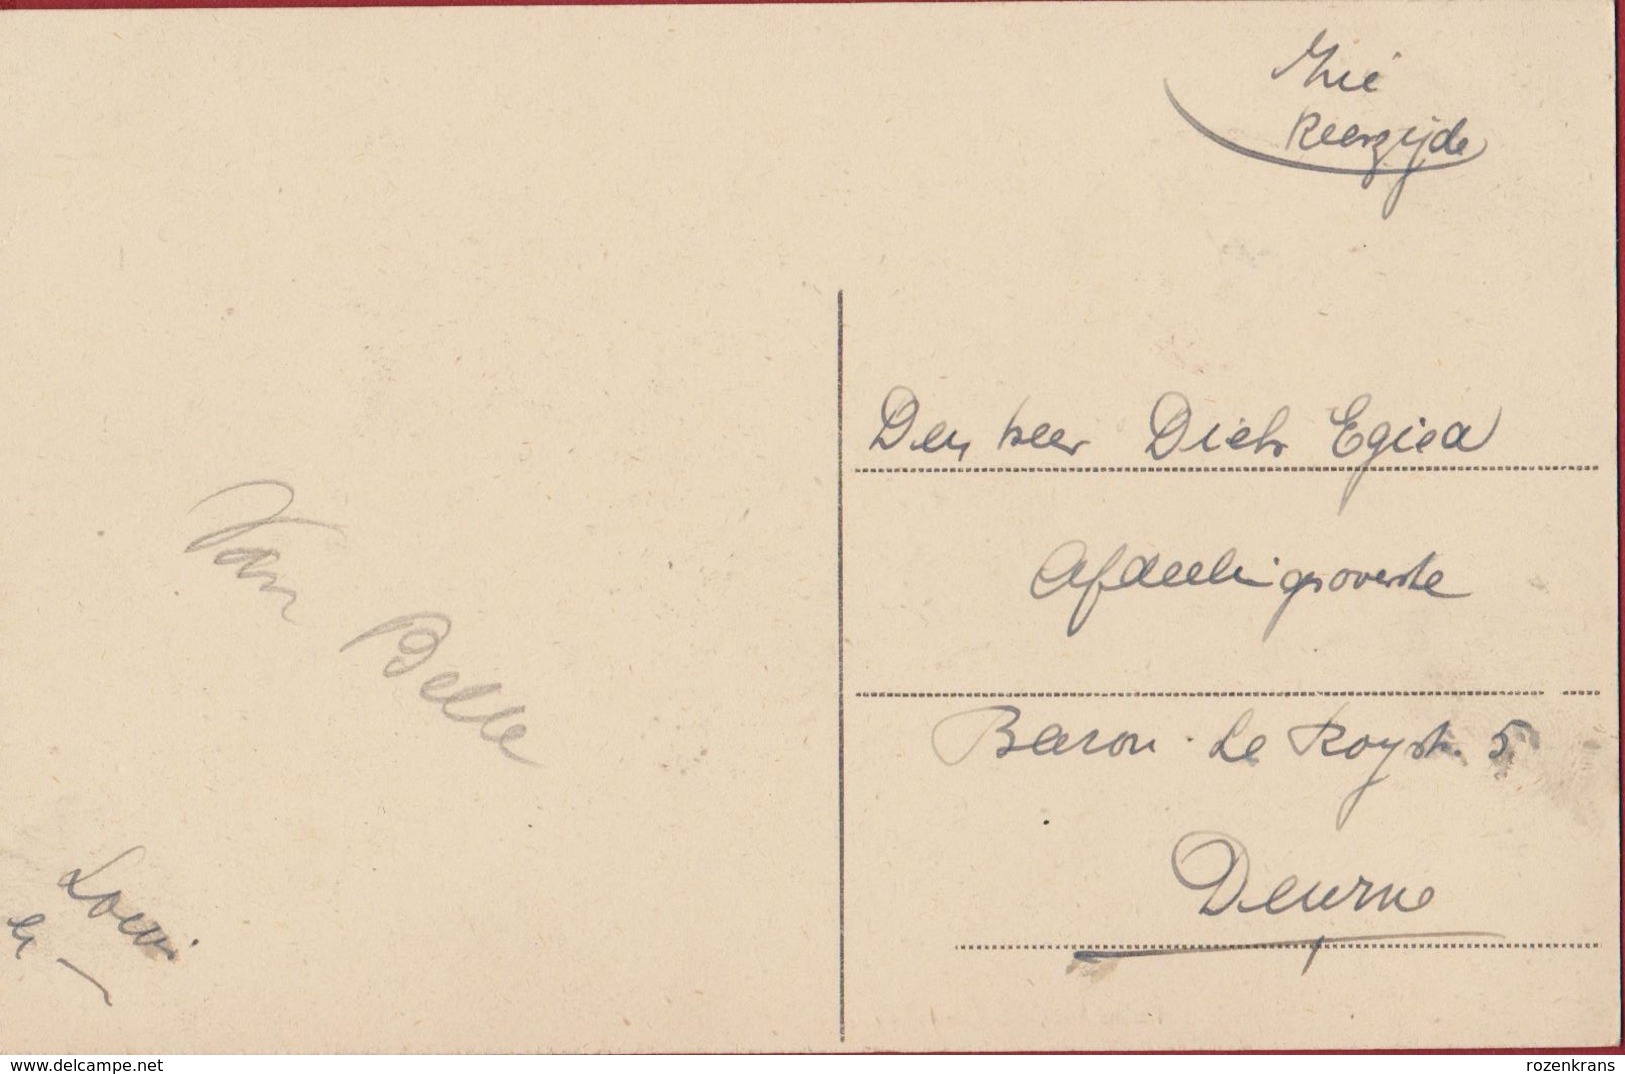 Zie
Keerzijde
Den heer Diels Egied
Afdeelingsoverste
Baron Le Roystr. 5
Deurne
Van Belle
Louis
delcampe.net
rozenkrans